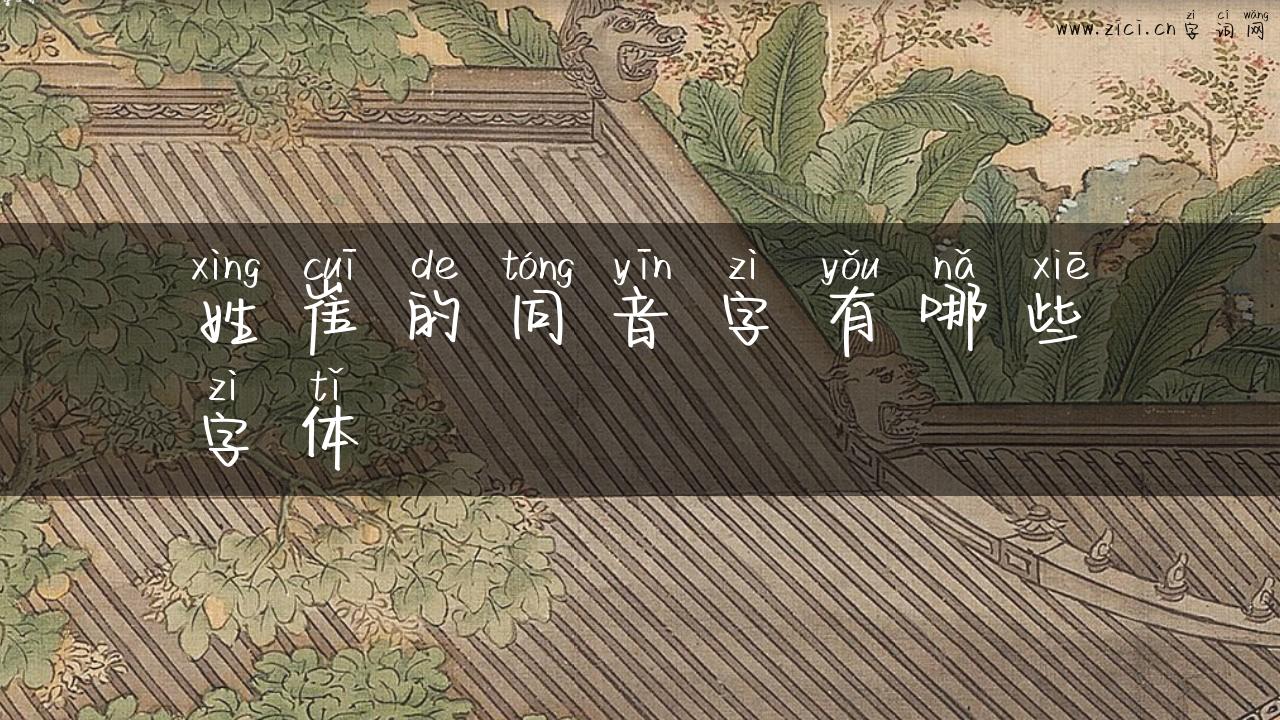 www.zici.cn 字词网
zì cí wǎng
xìng cuī de tóng yīn zì yǒu nǎ xiē
姓崔的同音字有哪些
zì tǐ
字体